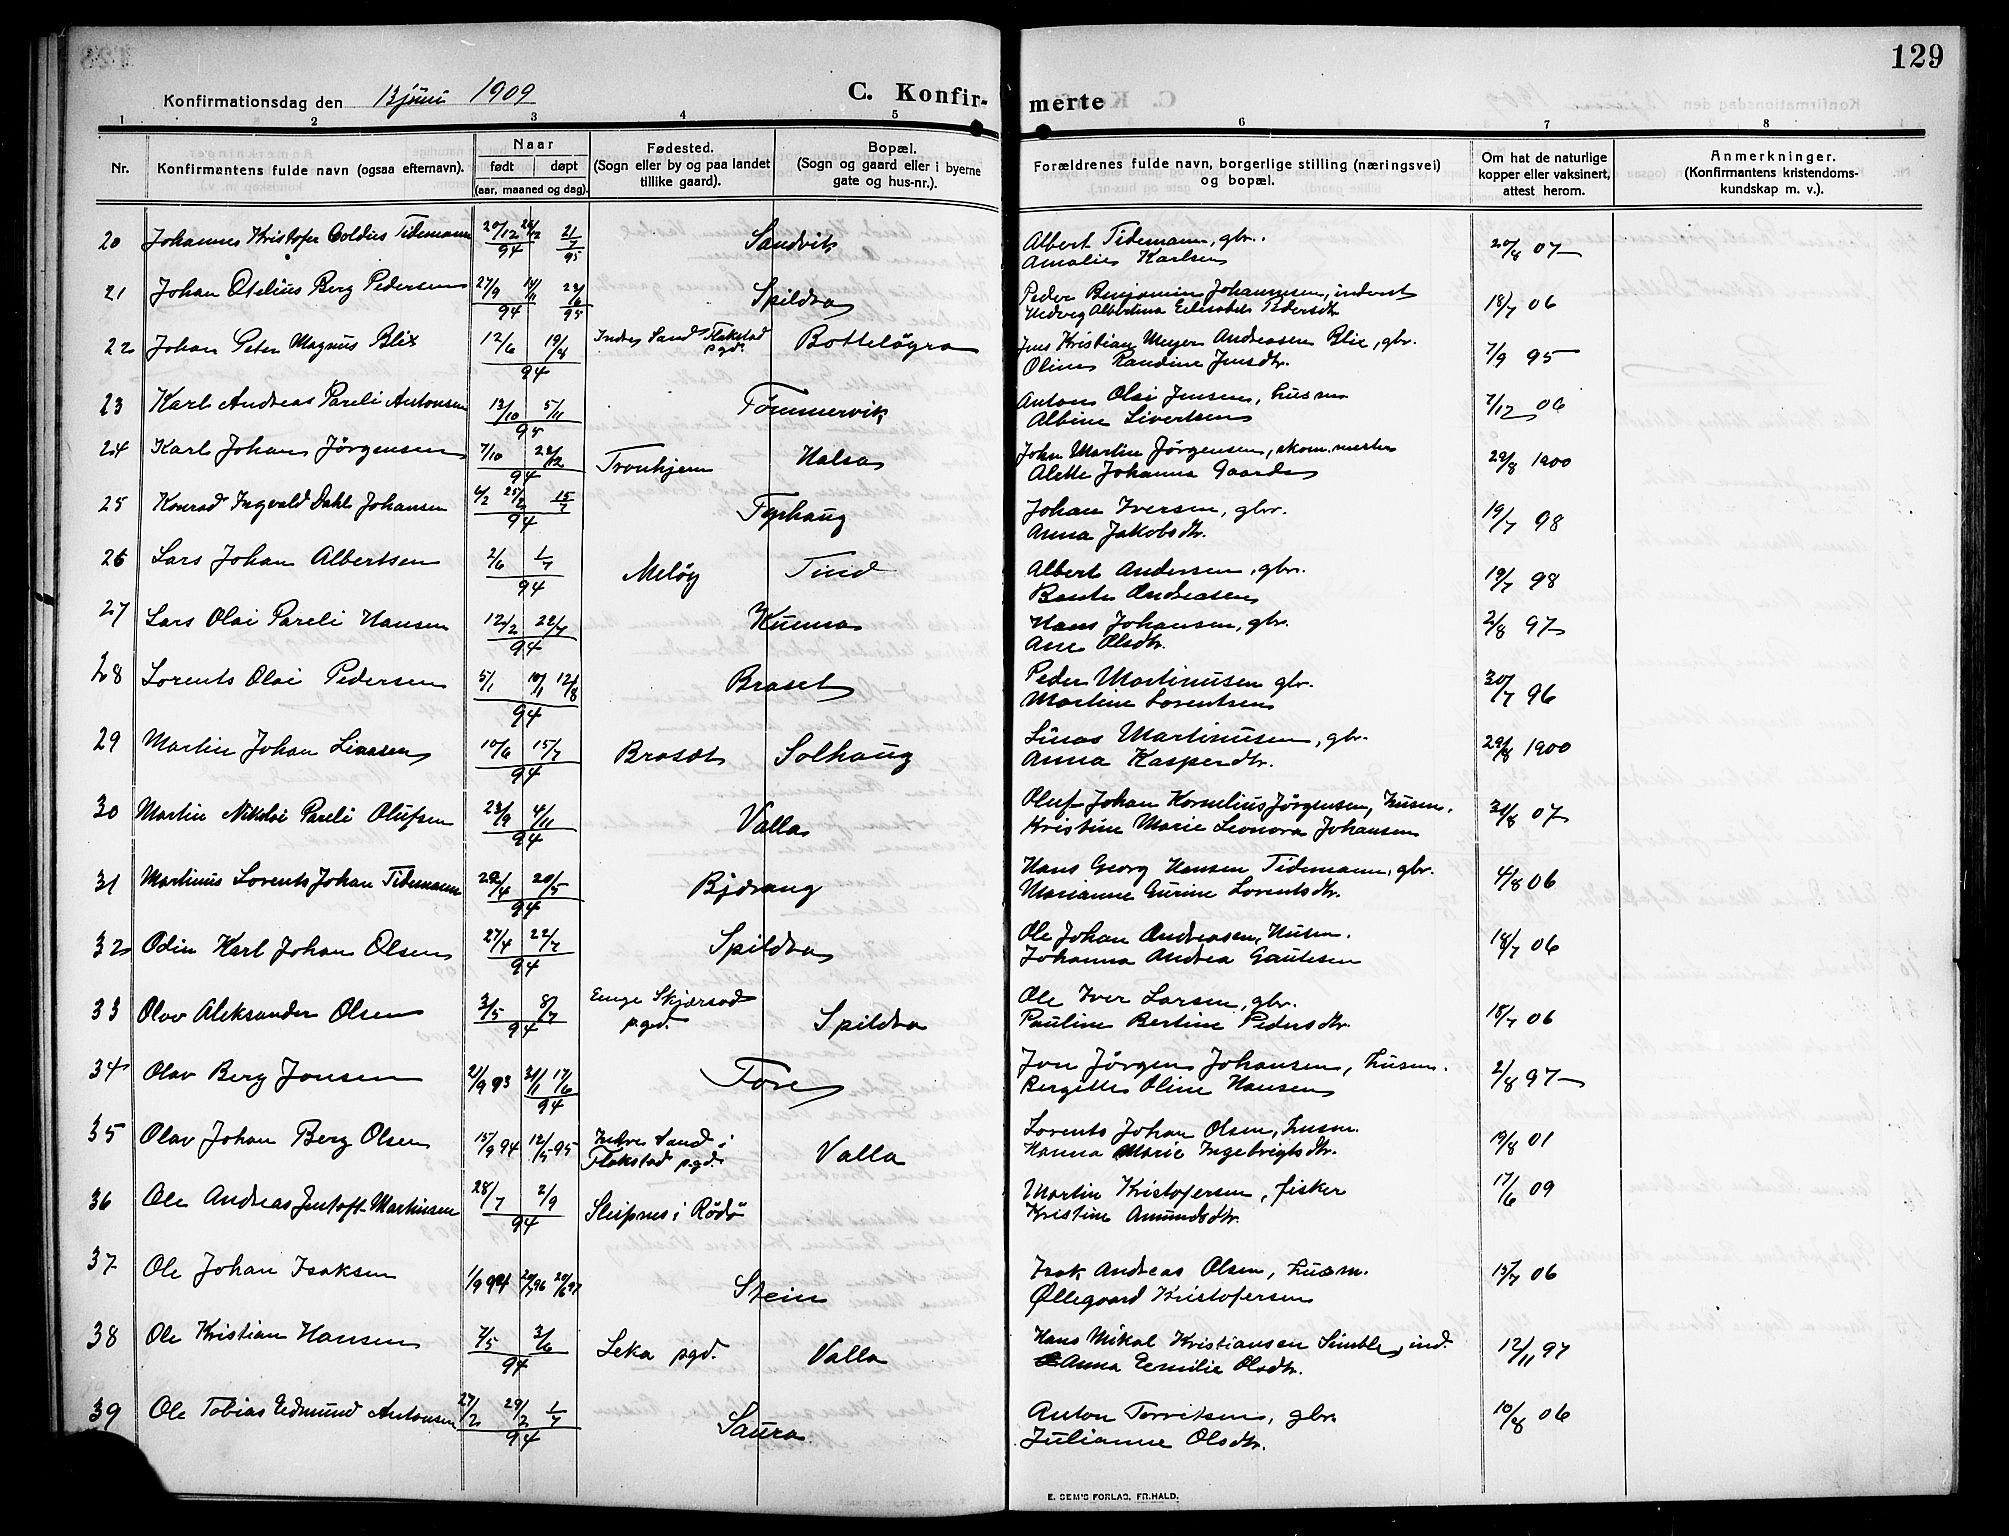 129
Konfirmationsdag den 13 juni 1909
C. Konfir-merte
1 2 3 4 5 6 7 8
Nr.
Konfirmantens fulde navn (ogsaa efternavn).
Naar
født døpt
(aar, maaned og dag).
Fødested.
(Sogn eller by og paa landet
tillike gaard).
Bopæl.
(Sogn og gaard eller i byerne
gate og hus-nr.).
Forældrenes fulde navn, borgerlige stilling (næringsvei)
og bopæl.
Om hat de naturlige
kopper eller vaksinert,
attest herom.
Anmerkninger.
(Konfirmantens kristendoms-
kundskap m. v.).
20 Johannes Kristofer Coldius Tidemann 20/12 26/12 94 21/7 95 Sandvik Albert Tidemann, gbr. 20/8 07
Amalie Karlsen
21 Johan Otelius Berg Pedersen 27/9 94 23/6 95 Spildra Peder Benjamin Johannesen, inderst 18/7 06
Hedvig Albertina Elisabet Pedersdtr.
22 Johan Peter Magnus Blix 12/6 19/8 94 Indre Sand Flakstad pgd. Botteløgra Jens Kristian Meyer Andreasen Blix, gbr. 7/9 95
Oline Randine Jensdtr.
23 Karl Andreas Pareli Antonsen 13/10 5/11 95 Tømmervik Anton Olai Jensen, husm 7/12 06
Albine Sivertsen
24 Karl Johan Jørgensen 7/10 28/12 94 Tronhjem Halsa John Martin Jørgensen, skom.mester 29/8 1900
Alette Johanna Gaarder
25 Konrad Ingvald Dahl Johansen 6/2 25/2 15/7 94 Fyrhaug Johan Iversen, gbr. 19/7 98
Anna Jakobsdtr.
26 Lars Johan Albertsen 2/6 1/7 94 Meløy Tind Albert Andersen, gbr. 19/7 98
Bente Andreasen
27 Lars Olai Pareli Hansen 12/2 22/7 94 Kunna Hans Johansen, gbr. 2/8 97
Ane Olsdtr.
28 Lorents Olai Pedersen 5/1 10/1 12/8 94 Braset Peder Martinusen gbr. 30/7 96
Martine Lorentsen
29 Martin Johan Linasen 10/6 15/7 94 Braset Solhaug Linas Martinusen, gbr. 29/8 1900
Anna Kaspersdtr.
30 Martin Nikolai Pareli Olufsen 23/9 4/11 94 Valla Oluf Johan Kornelius Jørgensen, husm. 31/8 07
Kristine Marie Leonora Johansen
31 Martinus Lorents Johan Tidemann 22/4 20/5 94 Bjærang Hans Georg Hansen Tidemann, gbr. 4/8 06
Marianne Gurine Lorentsdtr.
32 Odin Karl Johan Olsen 27/4 22/7 94 Spildra Ole Johan Andreasen, Husm. 18/7 06
Johanna Andrea Gautesen
33 Olav Aleksander Olsen 3/5 8/7 94 Enge Skjærstad pgd. Spildra Ole Iver Larsen, gbr. 18/7 06
Pauline Bertine Pedersdtr.
34 Olav Berg Jonsen 21/9 93 31/1 17/6 94 Fore Jon Jørgen Johansen, husm. 2/8 97
Bergitte Oline Hansen
35 Olav Johan Berg Olsen 15/9 94 12/5 95 Indre Sand i Flakstad pgd. Valla Lorents Johan Olsen, husm. 19/8 01
Hanna Marie Ingebrigtsdtr.
36 Ole Andreas Jentoft Martinsen 28/7 2/9 94 Sleipnes i Rødø Martin Kristofersen, fisker 17/6 09
Kristine Amundsdtr.
37 Ole Johan Isaksen 1/9 94 20/7 96 20/6 97 Stein Isak Andreas Olsen, husm. 15/7 06
Øllegaard Kristofersen
38 Ole Kristian Hansen 7/5 3/6 94 Leka pgd. Valla Hans Mikal Kristiansen Simble, ind. 12/11 97
Anna Emilie Olsdtr.
39 Ole Tobias Edmund Antonsen 27/2 29/2 1/7 94 Saura Anton Torvitsen, gbr. 10/8 06
Julianne Olsdtr.
E. SEM'S FORLAG, FR.HALD.